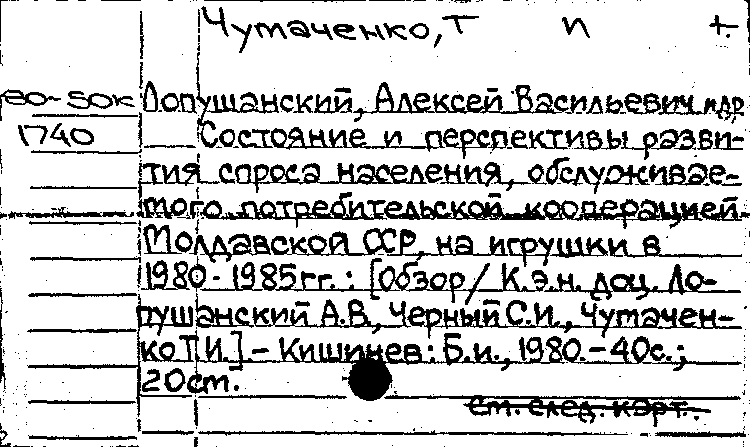 Чумаченко, Т И т.
80-50к Лопушанский, Алексей Васильевич идр.
1740 Состояние и перспективы разви-
тия спроса населения, обслуживае-
мого потребительской кооперацией
Молдавской ССР, на игрушки в
1980-1985гг.: [Обзор / К.э.н. доц. Ло-
пушанский А.В., Черный С.И., Чумачен-
ко Т.И.] - Кишинев: Б.и., 1980.-40с.;
20см.
см. след. карт.